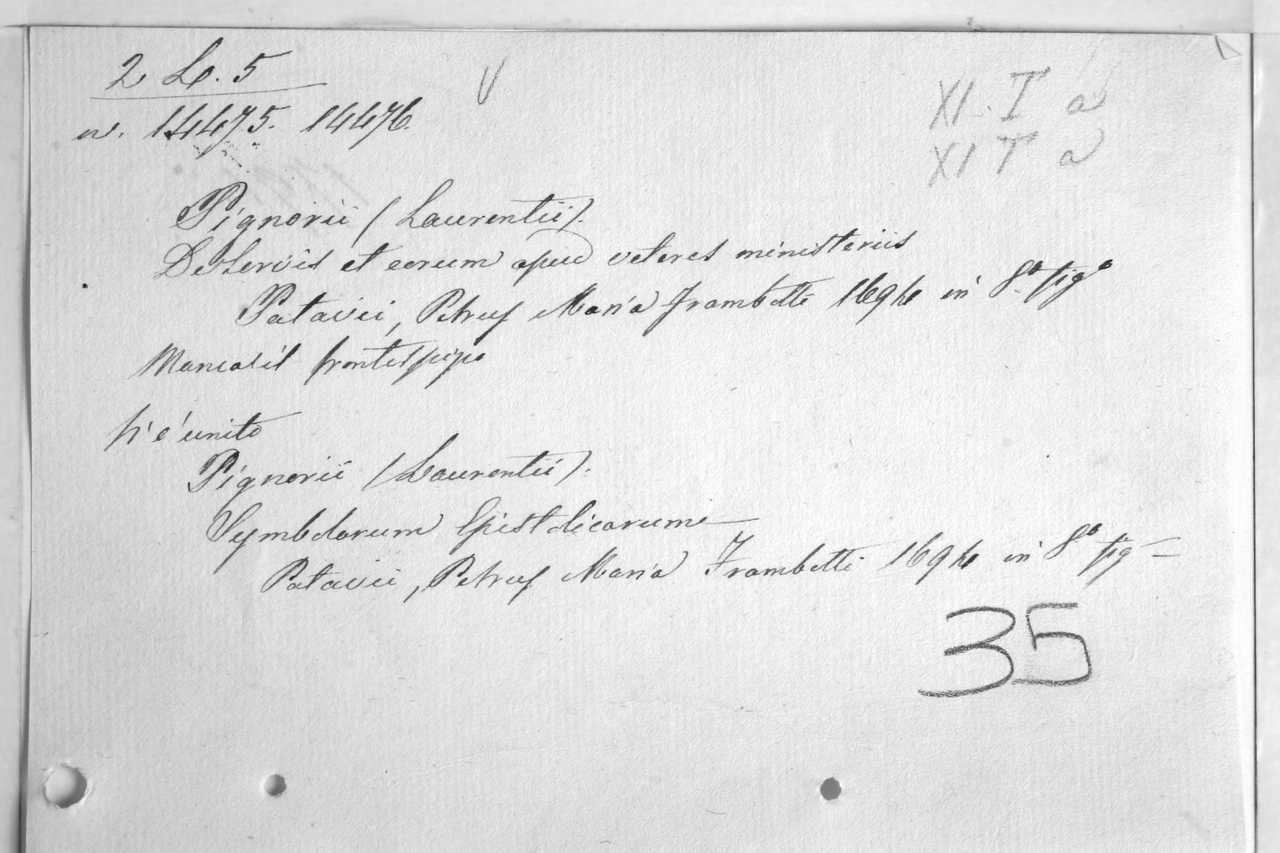 2 L. 5
n. 14475. 14476.
XI. T a
XI T a
Pignorii (Laurentii).
De Servis et eorum apud veteres ministeriis
Patavii, Petrus Maria Frambotti 1694 in 8° fig°
Manca il frontespizio
Vi è unito
Pignorii (Laurentii).
Symbolorum Epistolicarum
Patavii, Petrus Maria Frambotti 1694 in 8° fig
35